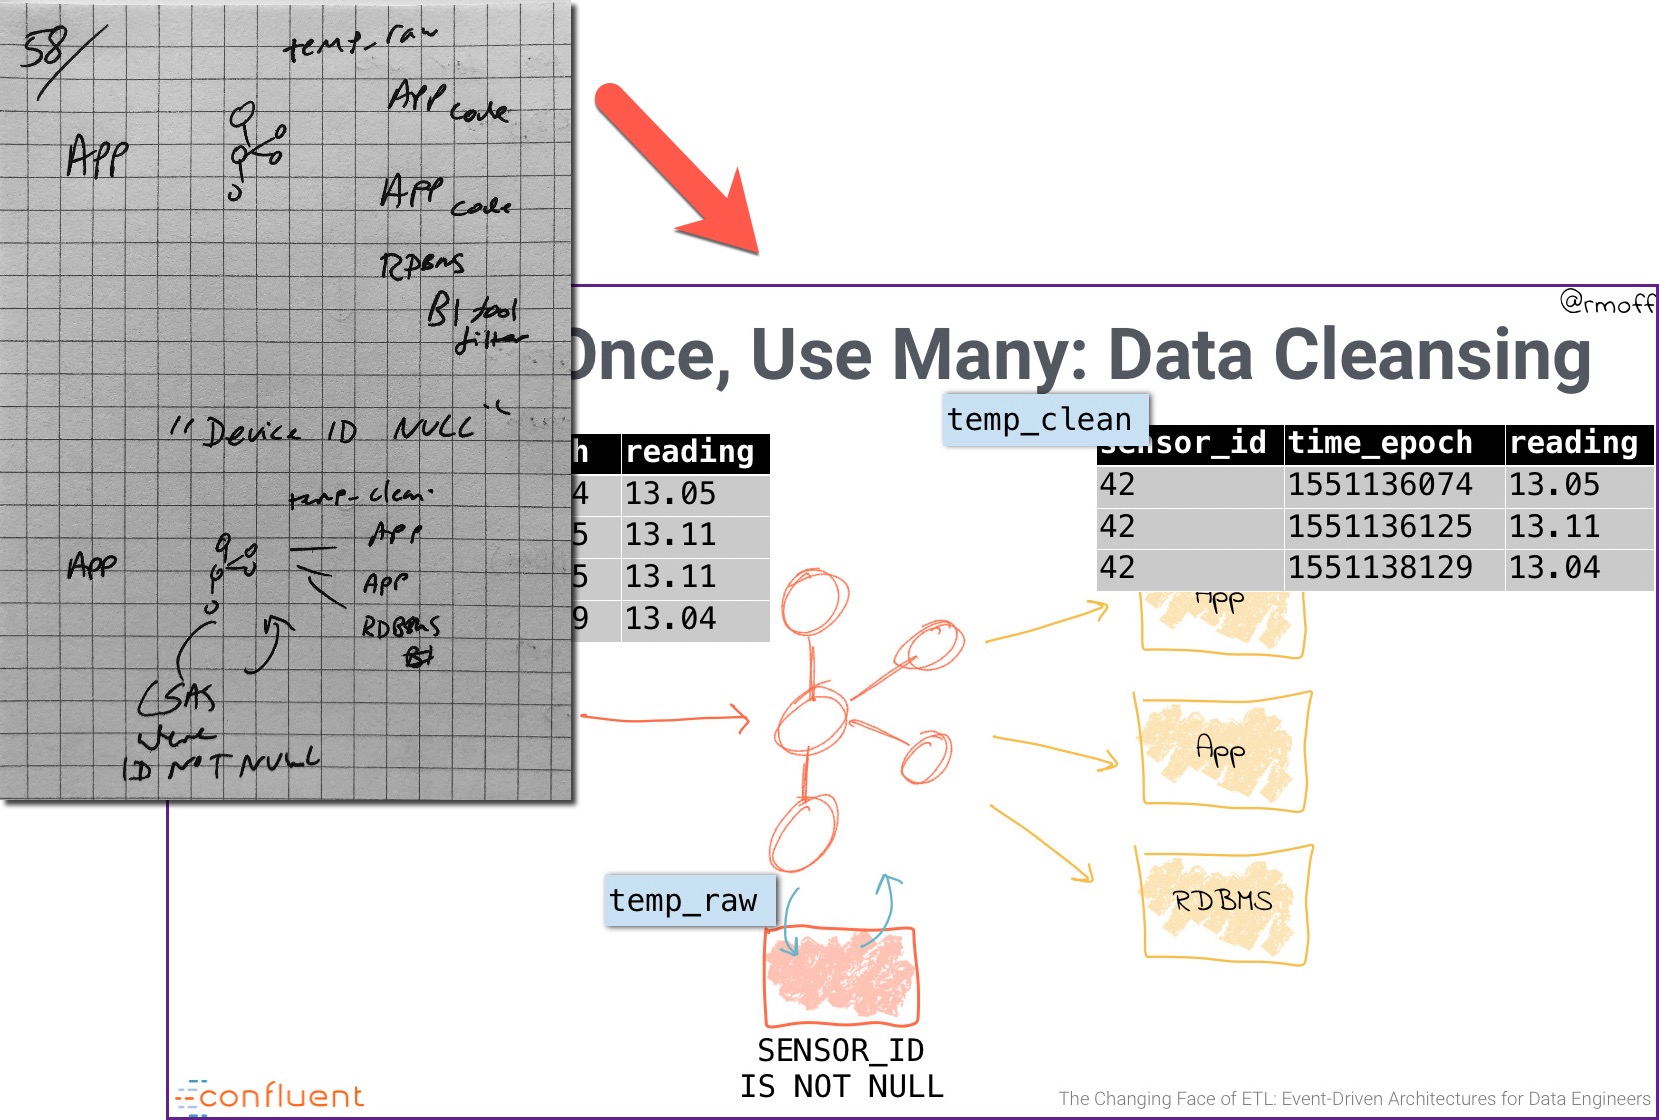 58/
temp_raw
App code
App
App code
RDBMS
BI tool
filter
"Device ID NULL"
temp_clean
App
App
App
RDBMS
BI
CSAS
where
ID NOT NULL
@rmoff
Once, Use Many: Data Cleansing
temp_clean
h reading
4 13.05
5 13.11
5 13.11
9 13.04
sensor_id time_epoch reading
42 1551136074 13.05
42 1551136125 13.11
42 1551138129 13.04
App
App
RDBMS
temp_raw
SENSOR_ID
IS NOT NULL
confluent
The Changing Face of ETL: Event-Driven Architectures for Data Engineers